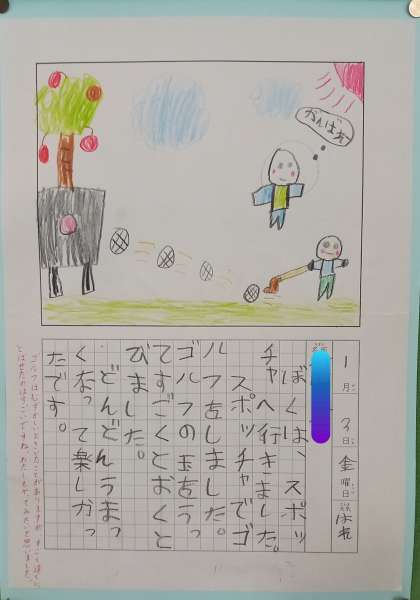 がんばれ
1月 日 金曜日 はれ
ぼくは、スポッ
チャへ行きました。
スポッチャでゴ
ルフをしました。
ゴルフの玉をうっ
てすごくとおくと
びました。
どんどんうまっ
くなって楽しかっ
たです。
ゴルフはむずかしいときいたことがありますが、すごく遠く
とばせたのはすごいですね。わたしもやってみたいと思いました。